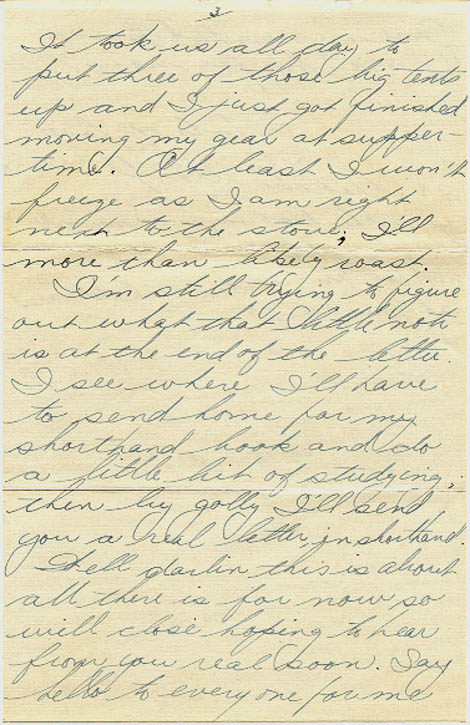 3
It took us all day to
put three of those big tents
up and I just got finished
moving my gear at supper-
time. At least I won't
freeze as I am right
next to the stove, I'll
more than likely roast.
I'm still trying to figure
out what that little note
is at the end of the letter.
I see where I'll have
to send home for my
shorthand book and do
a little bit of studying,
then by golly I'll send
you a real letter, in shorthand.
Well darlin this is about
all there is for now so
will close hoping to hear
from you real soon. Say
hello to everyone for me